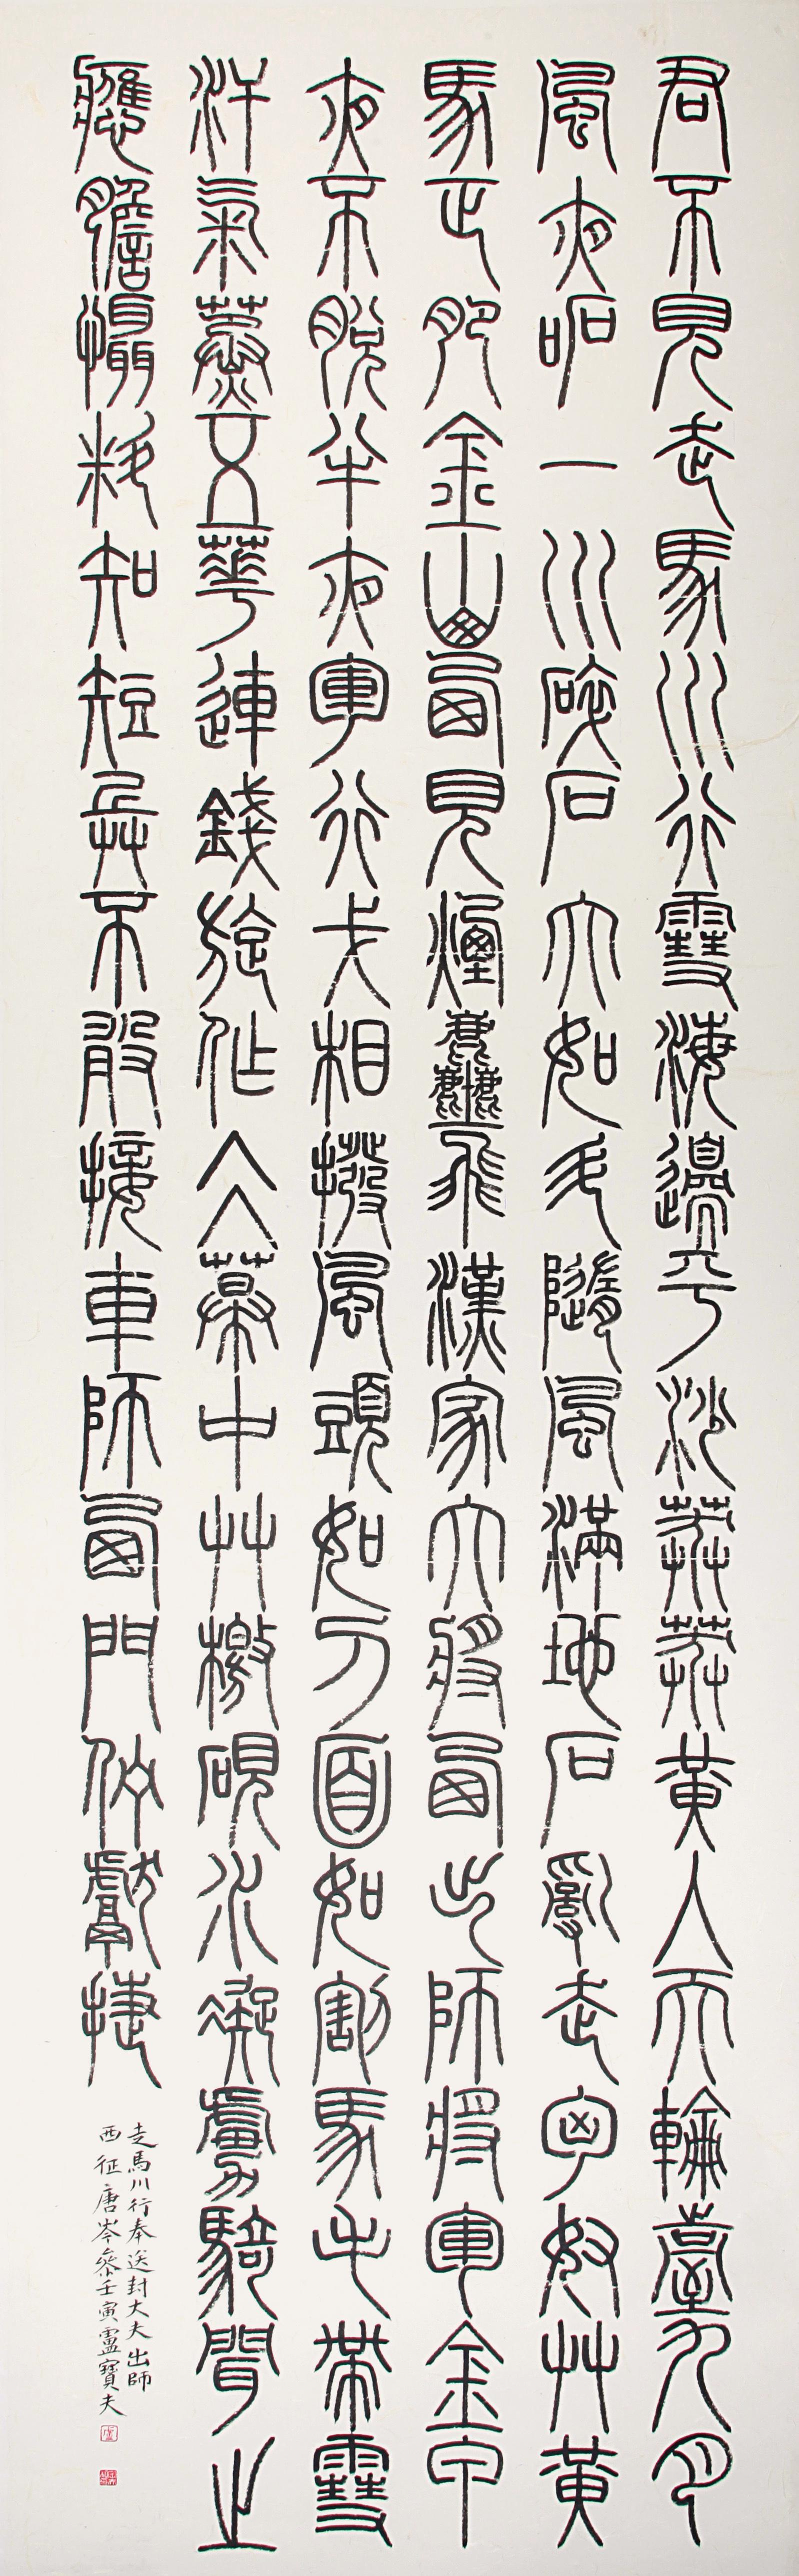 君不見走馬川行雪海邊平沙莽莽黃入天輪臺九月
風夜吼一川碎石大如斗隨風滿地石亂走匈奴艸黃
馬正肥金山西見煙塵飛漢家大將西出師將軍金甲
夜不脫半夜軍行戈相撥風頭如刀面如割馬毛帶雪
汗氣蒸五華連錢旋作仌幕中艸檄硯水凝虜騎聞之
應膽懾料知短兵不敢接車師西門佇獻捷
走馬川行奉送封大夫出師
西征唐岑參壬寅盧寶夫